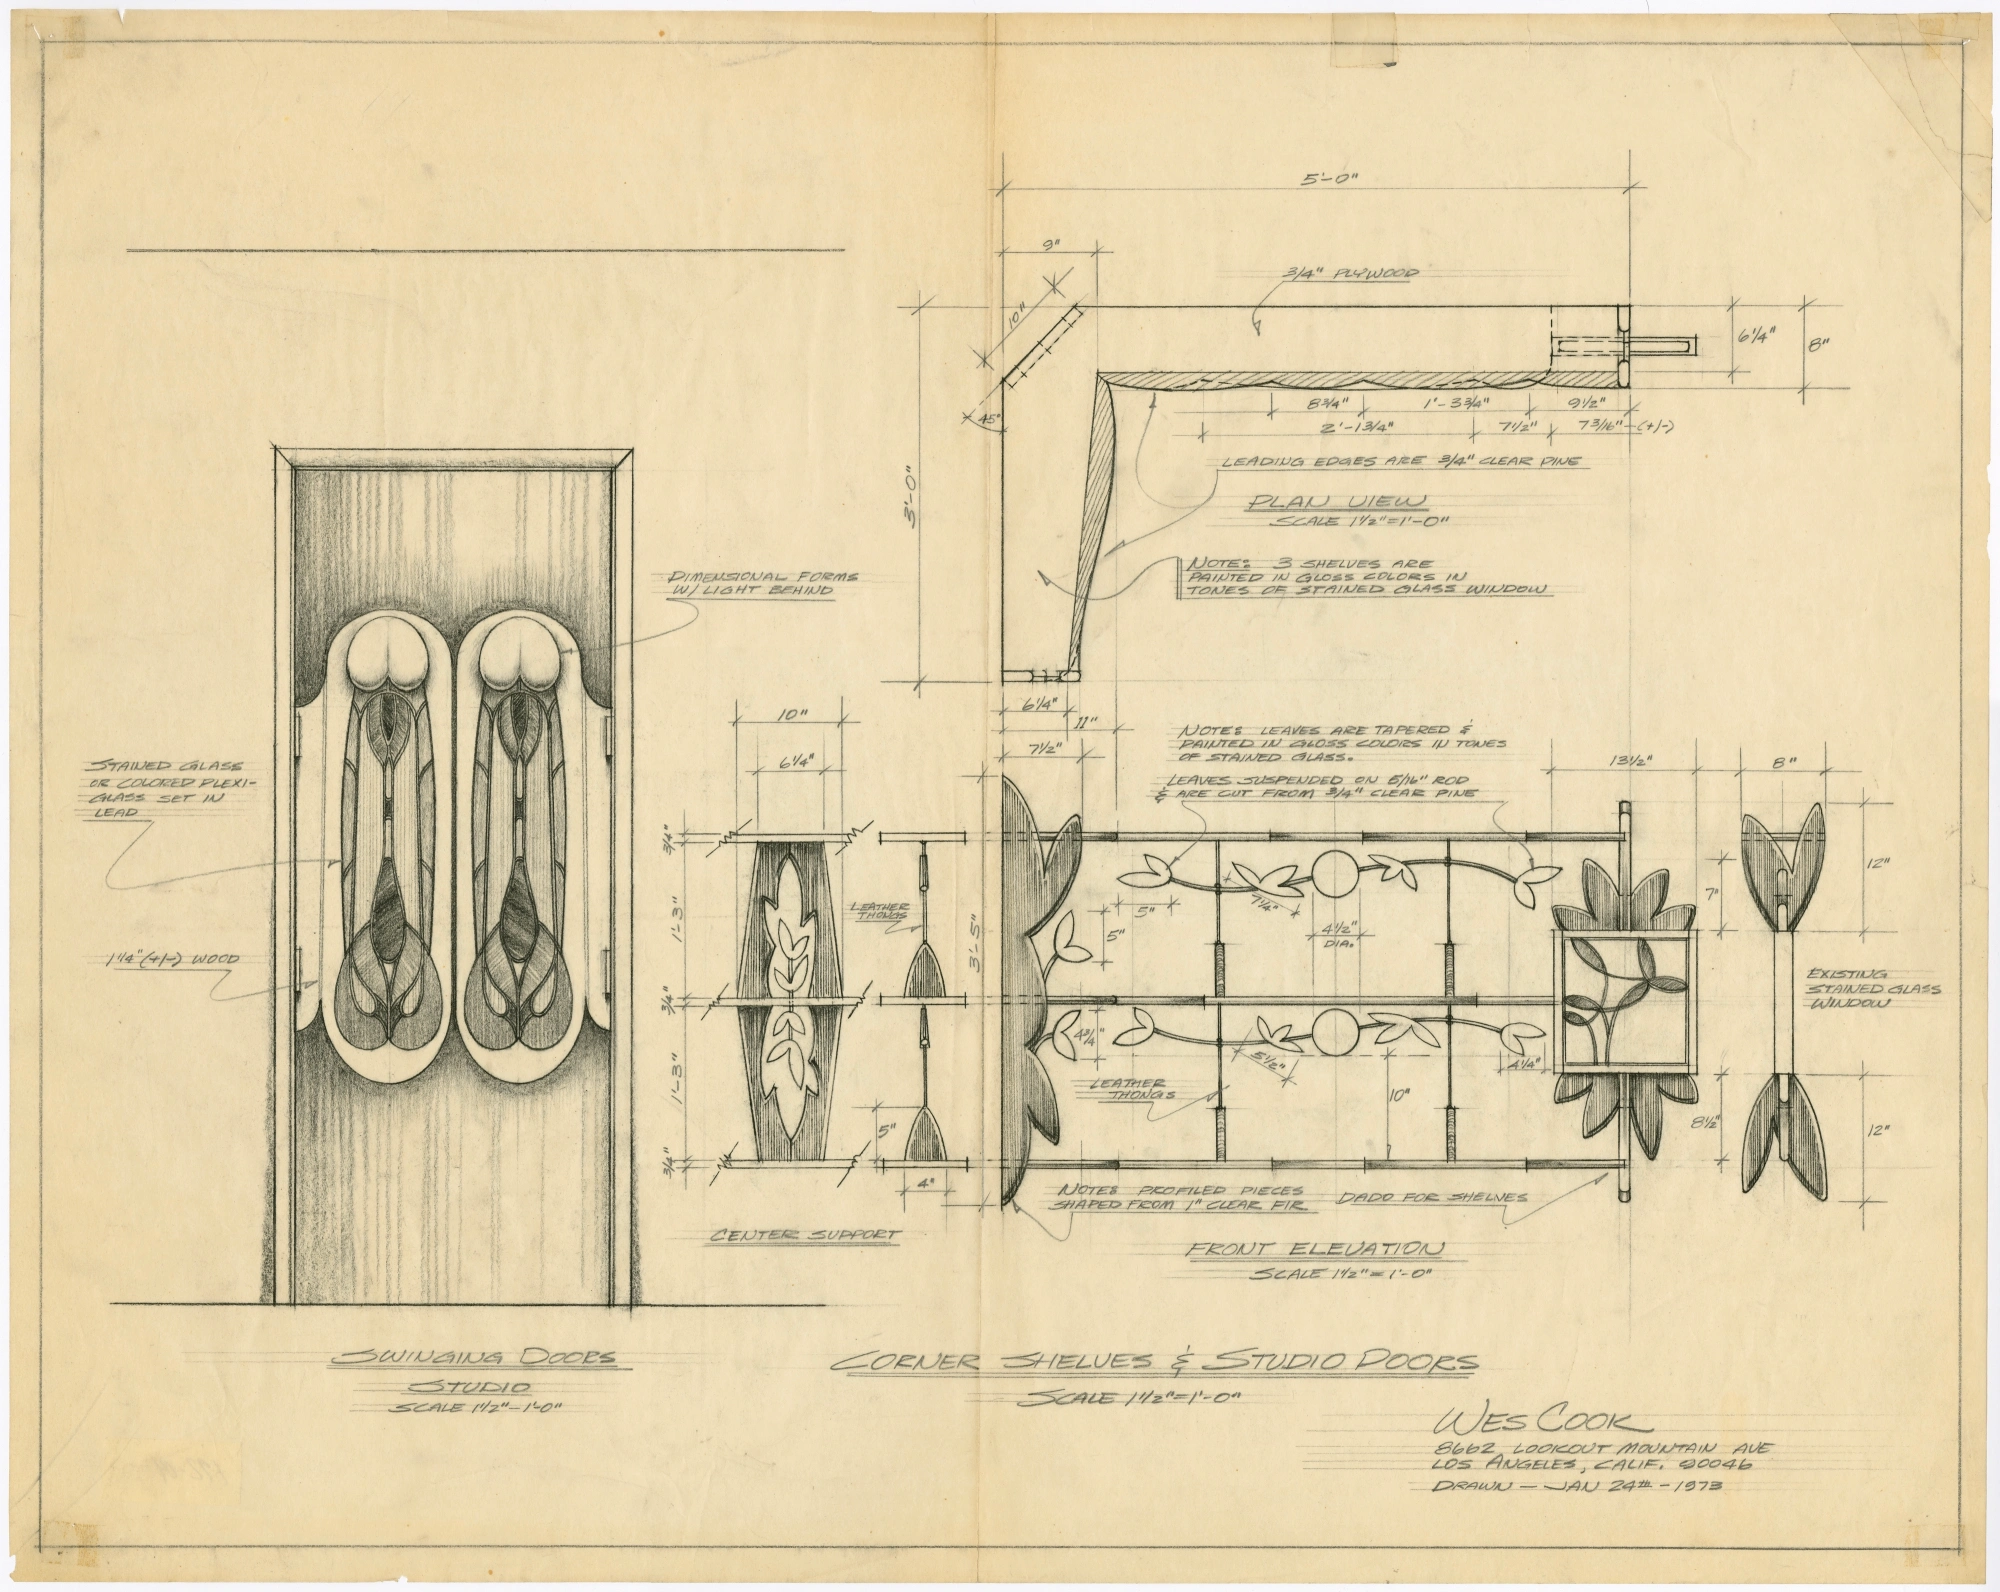 5'-0"
9"
3/4" PLYWOOD
10"
6 1/4"
8"
45°
8 3/4"
1'-3 3/4"
9 1/2"
2'-1 3/4"
7 1/2"
7 3/16" (+/-)
LEADING EDGES ARE 3/4" CLEAR PINE
3'-0"
PLAN VIEW
SCALE 1 1/2"=1'-0"
NOTE: 3 SHELVES ARE
PAINTED IN GLOSS COLORS IN
TONES OF STAINED GLASS WINDOW
DIMENSIONAL FORMS
W/ LIGHT BEHIND
6 1/4"
11"
7 1/2"
10"
6 1/4"
NOTE: LEAVES ARE TAPERED &
PAINTED IN GLOSS COLORS IN TONES
OF STAINED GLASS.
LEAVES SUSPENDED ON 5/16" ROD
& ARE CUT FROM 3/4" CLEAR PINE
13 1/2"
8"
STAINED GLASS
OR COLORED PLEXI-
GLASS SET IN
LEAD
1 1/4" (+/-) WOOD
3/4"
1'-3"
3/4"
1'-3"
3/4"
LEATHER
THONGS
3'-5"
5"
5"
7 1/4"
4 1/2"
DIA.
7"
12"
EXISTING
STAINED GLASS
WINDOW
4 3/4"
5 1/2"
4 1/4"
LEATHER
THONGS
10"
8 1/2"
12"
5"
4"
NOTE: PROFILED PIECES
SHAPED FROM 1" CLEAR FIR
DADO FOR SHELVES
CENTER SUPPORT
FRONT ELEVATION
SCALE 1 1/2"=1'-0"
SWINGING DOORS
STUDIO
SCALE 1 1/2"-1'-0"
CORNER SHELVES & STUDIO DOORS
SCALE 1 1/2"=1'-0"
WES COOK
8662 LOOKOUT MOUNTAIN AVE
LOS ANGELES, CALIF. 90046
DRAWN - JAN 24th - 1973